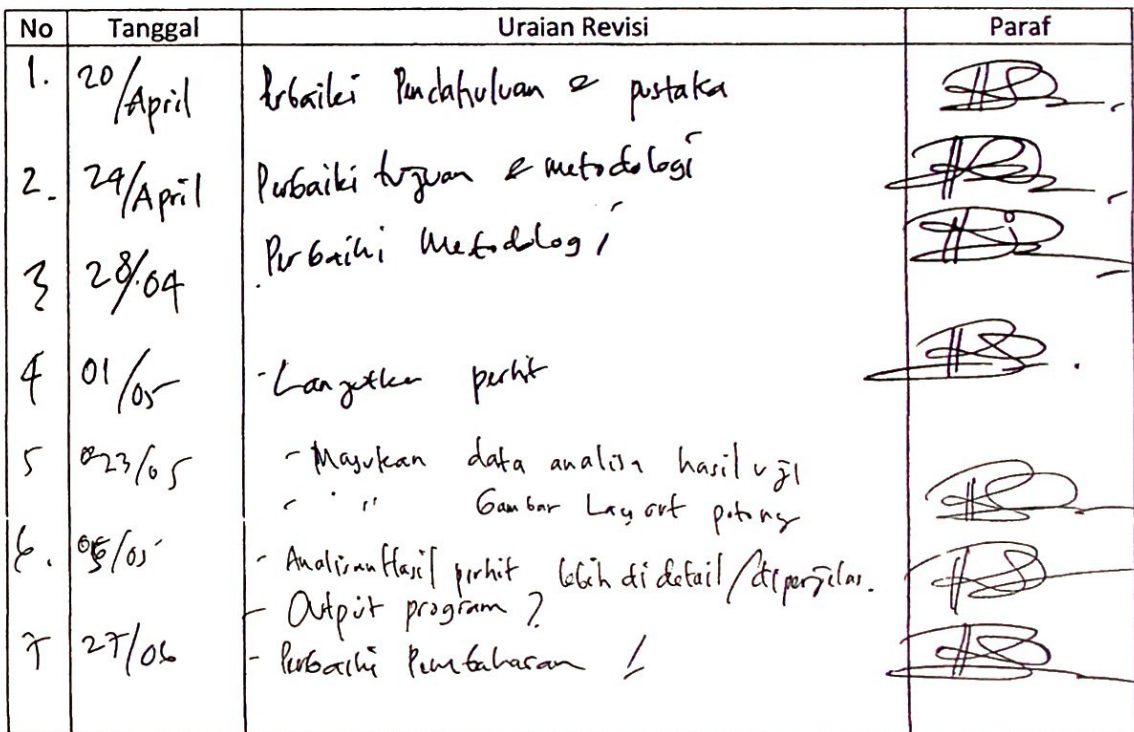 No Tanggal Uraian Revisi Paraf
1. 20/April Perbaiki Pendahuluan & pustaka
2. 24/April Perbaiki tujuan & metodologi
3 28/04 Perbaiki Metodologi
4 01/05 - Lanjutkan perhit
5 23/05 - Masukan data analisa hasil uji
" " Gambar Layout potong
6. /05 - Analisan Hasil perhit lebih di detail/diperjelas.
- Output program ?
7 27/06 - Perbaiki Pembahasan !